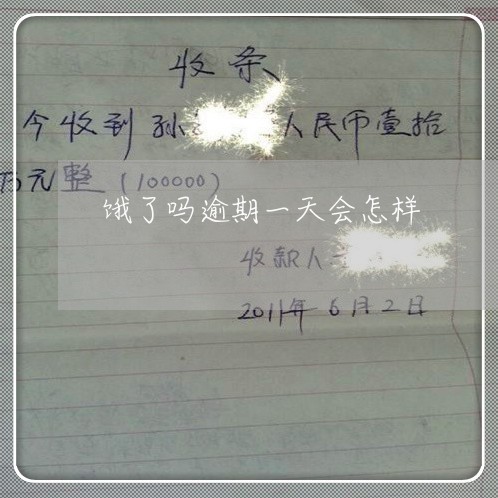 收条
今收到孙 人民币壹拾
万元整（100000）
饿了吗逾期一天会怎样
收款人
2011年6月2日